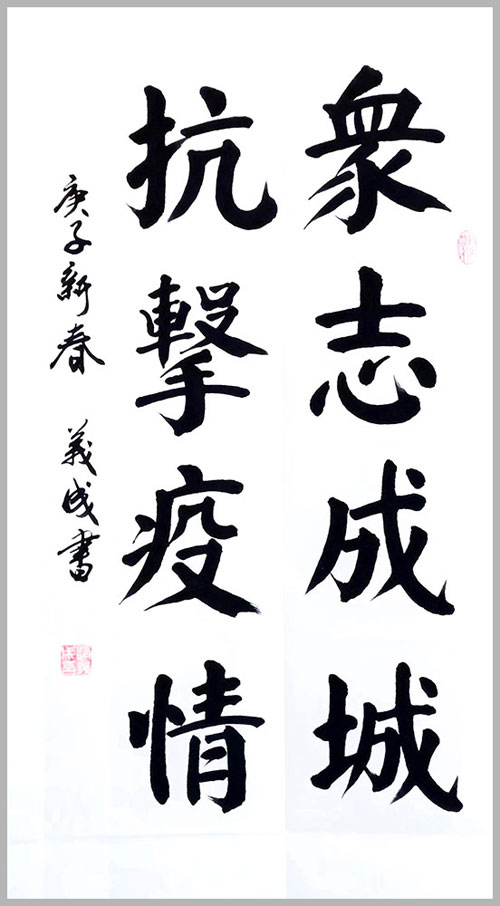 衆志成城
抗擊疫情
庚子新春 義成書